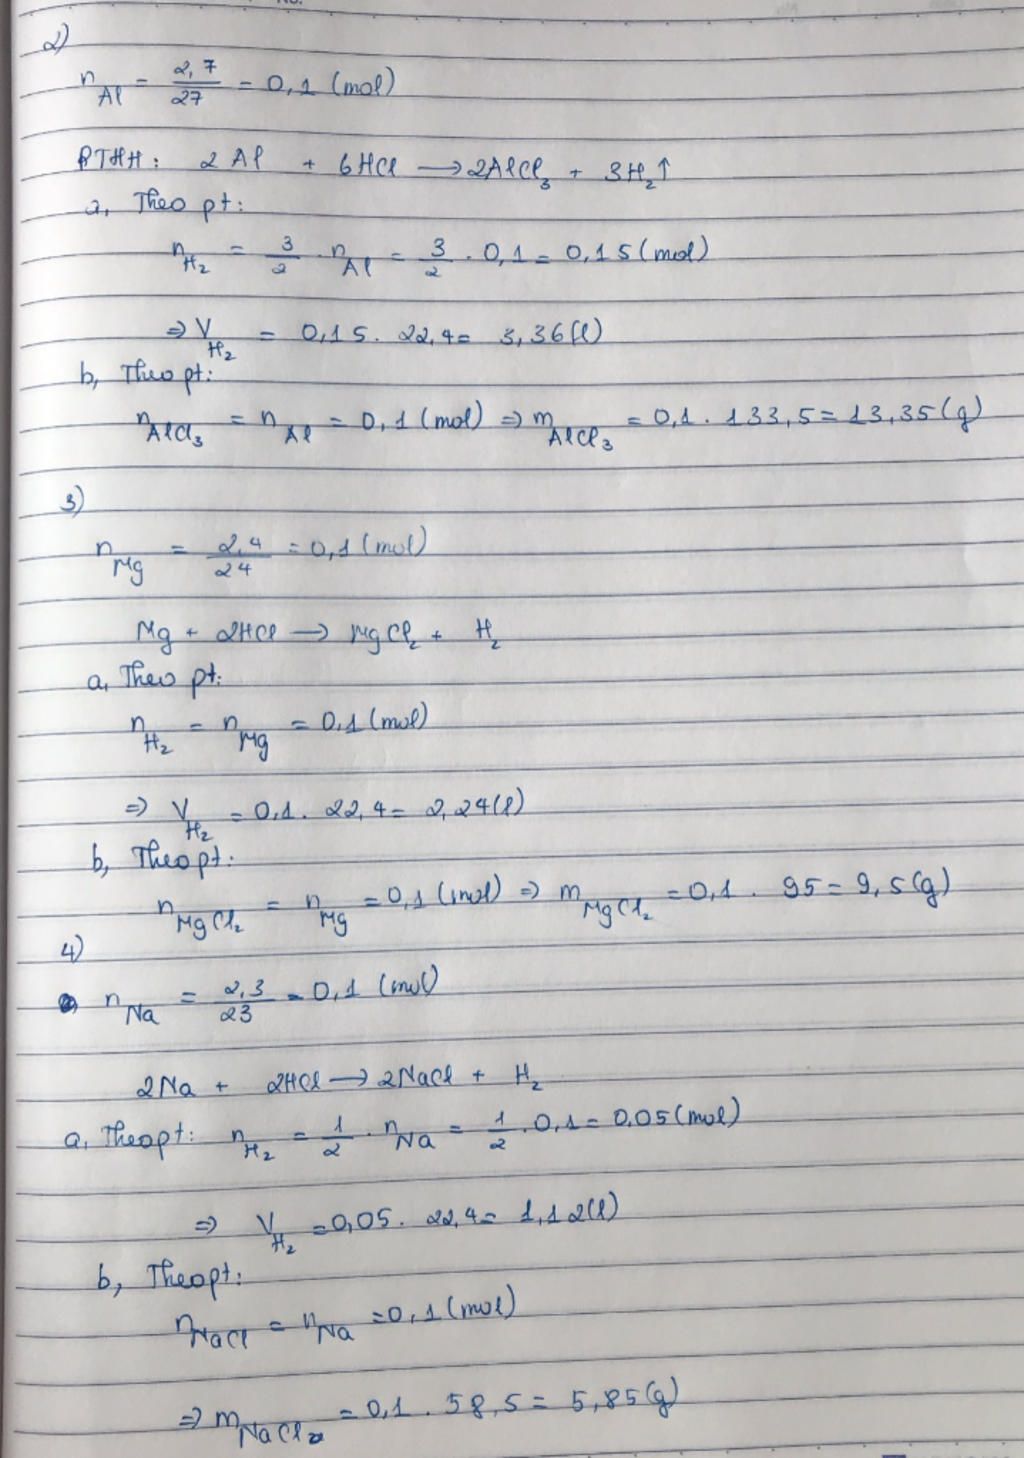 2)
n Al = 2,7/27 = 0,1 (mol)
PTHH: 2Al + 6HCl → 2AlCl₃ + 3H₂↑
a, Theo pt:
n H₂ = 3/2 . n Al = 3/2 . 0,1 = 0,15 (mol)
⇒ V H₂ = 0,15. 22,4 = 3,36 (l)
b, Theo pt:
n AlCl₃ = n Al = 0,1 (mol) ⇒ m AlCl₃ = 0,1 . 133,5 = 13,35 (g)
3)
n Mg = 2,4/24 = 0,1 (mol)
Mg + 2HCl → MgCl₂ + H₂
a, Theo pt:
n H₂ = n Mg = 0,1 (mol)
⇒ V H₂ = 0,1. 22,4 = 2,24 (l)
b, Theo pt:
n MgCl₂ = n Mg = 0,1 (mol) ⇒ m MgCl₂ = 0,1 . 95 = 9,5 (g)
4)
n Na = 2,3/23 = 0,1 (mol)
2Na + 2HCl → 2NaCl + H₂
a, Theo pt: n H₂ = 1/2 . n Na = 1/2 . 0,1 = 0,05 (mol)
⇒ V H₂ = 0,05. 22,4 = 1,12 (l)
b, Theo pt:
n NaCl = n Na = 0,1 (mol)
⇒ m NaCl = 0,1 . 58,5 = 5,85 (g)